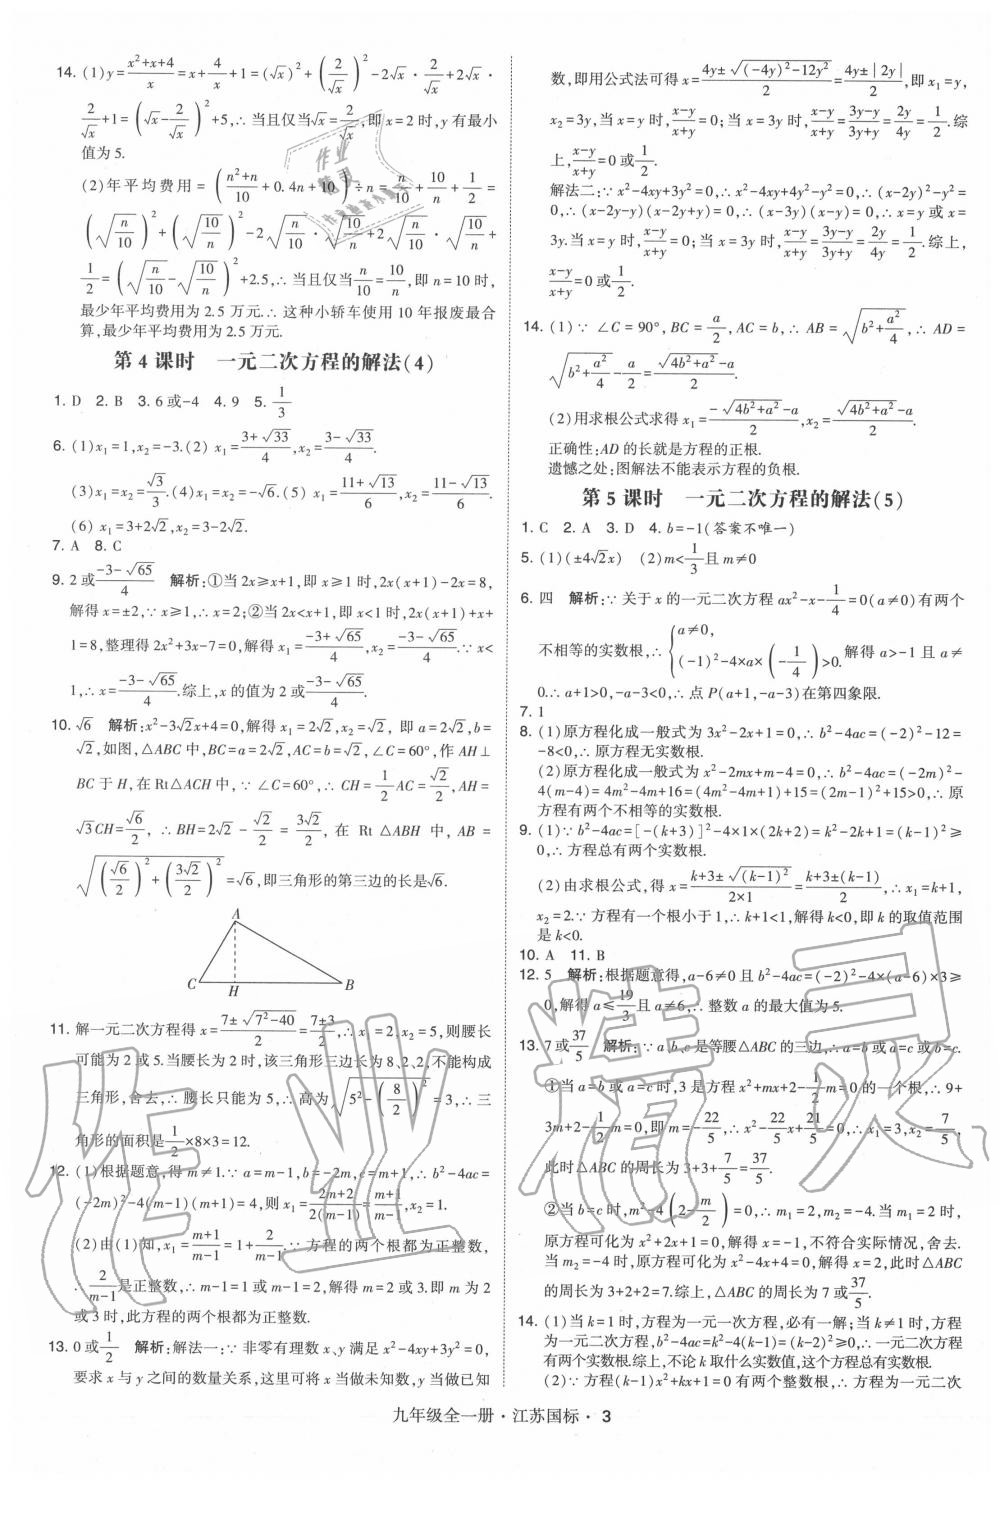 14. (1) y=(x²+x+4)/x=x+4/x+1=(√x)²+(2/√x)²-2√x·2/√x+2√x·
2/√x+1=(√x-2/√x)²+5,∴当且仅当√x=2/√x,即x=2时,y有最小
值为5.
(2)年平均费用=((n²+n)/10+0.4n+10)÷n=n/10+10/n+1/2=
(√(n/10))²+(√(10/n))²-2√(n/10)·√(10/n)+2√(n/10)·√(10/n)+
1/2=(√(n/10)-√(10/n))²+2.5,∴当且仅当n/10=10/n,即n=10时,
最少年平均费用为2.5万元.∴这种小轿车使用10年报废最合
算,最少年平均费用为2.5万元.
第4课时 一元二次方程的解法(4)
1. D 2. B 3. 6或-4 4. 9 5. 1/3
6. (1)x₁=1,x₂=-3.(2) x₁=(3+√33)/4,x₂=(3-√33)/4.
(3)x₁=x₂=√3/3.(4)x₁=x₂=-√6.(5) x₁=(11+√13)/6,x₂=(11-√13)/6.
(6) x₁=3+2√2,x₂=3-2√2.
7. A 8. C
9. 2或(-3-√65)/4 解析:①当2x≥x+1,即x≥1时,2x(x+1)-2x=8,
解得x=±2,∵x≥1,∴x=2;②当2x<x+1,即x<1时,2x(x+1)+x+
1=8,整理得2x²+3x-7=0,解得x₁=(-3+√65)/4,x₂=(-3-√65)/4.∵x<
1,∴x=(-3-√65)/4.综上,x的值为2或(-3-√65)/4.
10. √6 解析:x²-3√2x+4=0,解得x₁=2√2,x₂=√2,即a=2√2,b=
√2,如图,△ABC中,BC=a=2√2,AC=b=√2,∠C=60°,作AH⊥
BC于H,在Rt△ACH中,∵∠C=60°,∴CH=1/2AC=√2/2,AH=
√3CH=√6/2,∴BH=2√2-√2/2=3√2/2,在Rt△ABH中,AB=
√((√6/2)²+(3√2/2)²)=√6,即三角形的第三边的长是√6.
A
C H B
11. 解一元二次方程得x=(7±√(7²-40))/2=(7±3)/2,∴x₁=2,x₂=5,则腰长
可能为2或5.当腰长为2时,该三角形三边长为8,2,2,不能构成
三角形,舍去,∴腰长只能为5,∴高为√(5²-(8/2)²)=3,∴三
角形的面积是1/2×8×3=12.
12. (1)根据题意,得m≠1.∵a=m-1,b=-2m,c=m+1,∴b²-4ac=
(-2m)²-4(m-1)(m+1)=4,则x₁=(2m+2)/(2(m-1))=(m+1)/(m-1),x₂=1.
(2)由(1)知,x₁=(m+1)/(m-1)=1+2/(m-1).∵方程的两个根都为正整数,
∴2/(m-1)是正整数,∴m-1=1或m-1=2,解得m=2或3.即m为2
或3时,此方程的两个根都为正整数.
13. 0或1/2 解析:解法一:∵非零有理数x、y满足x²-4xy+3y²=0,
要求x与y之间的数量关系,这里可将x当做未知数,y当做已知
数,即用公式法可得x=(4y±√((-4y)²-12y²))/2=(4y±|2y|)/2,即x₁=y,
x₂=3y,当x=y时,(x-y)/(x+y)=0;当x=3y时,(x-y)/(x+y)=(3y-y)/(3y+y)=2y/4y=1/2.综
上,(x-y)/(x+y)=0或1/2.
解法二:∵x²-4xy+3y²=0,∴x²-4xy+4y²-y²=0,∴(x-2y)²-y²=
0,∴(x-2y-y)(x-2y+y)=0,∴(x-3y)(x-y)=0,∴x=y或x=
3y.当x=y时,(x-y)/(x+y)=0;当x=3y时,(x-y)/(x+y)=(3y-y)/(3y+y)=2y/4y=1/2.综上,
(x-y)/(x+y)=0或1/2.
14. (1)∵∠C=90°,BC=a/2,AC=b,∴AB=√(b²+a²/4),∴AD=
√(b²+a²/4)-a/2=(√(4b²+a²)-a)/2.
(2)用求根公式求得x₁=(-√(4b²+a²)-a)/2,x₂=(√(4b²+a²)-a)/2.
正确性:AD的长就是方程的正根.
遗憾之处:图解法不能表示方程的负根.
第5课时 一元二次方程的解法(5)
1. C 2. A 3. D 4. b=-1(答案不唯一)
5. (1)(±4√2x) (2)m<1/3且m≠0
6. 四 解析:∵关于x的一元二次方程ax²-x-1/4=0(a≠0)有两个
不相等的实数根,∴{a≠0, (-1)²-4×a×(-1/4)>0. 解得a>-1且a≠
0.∴a+1>0,-a-3<0,∴点P(a+1,-a-3)在第四象限.
7. 1
8. (1)原方程化成一般式为3x²-2x+1=0,∴b²-4ac=(-2)²-12=
-8<0,∴原方程无实数根.
(2)原方程化成一般式为x²-2mx+m-4=0,∴b²-4ac=(-2m)²-
4(m-4)=4m²-4m+16=(4m²-4m+1)+15=(2m-1)²+15>0,∴原
方程有两个不相等的实数根.
9. (1)∵b²-4ac=[-(k+3)]²-4×1×(2k+2)=k²-2k+1=(k-1)²≥
0,∴方程总有两个实数根.
(2)由求根公式,得x=(k+3±√((k-1)²))/(2×1)=(k+3±(k-1))/2,∴x₁=k+1,
x₂=2.∵方程有一个根小于1,∴k+1<1,解得k<0,即k的取值范围
是k<0.
10. A 11. B
12. 5 解析:根据题意得,a-6≠0且b²-4ac=(-2)²-4×(a-6)×3≥
0,解得a≤19/3且a≠6,∴整数a的最大值为5.
13. 7或37/5 解析:∵a、b、c是等腰△ABC的三边,∴a=b或a=c或b=c.
①当a=b或a=c时,3是方程x²+mx+2-1/2m=0的一个根,∴9+
3m+2-1/2m=0,即m=-22/5,∴x²-22/5x+21/5=0,∴x₁=3,x₂=7/5,
此时△ABC的周长为3+3+7/5=37/5;
②当b=c时,m²-4(2-m/2)=0,∴m₁=2,m₂=-4.当m₁=2时,
原方程可化为x²+2x+1=0,解得x=-1,不符合实际情况,舍去.
当m₂=-4时,原方程可化为x²-4x+4=0,解得x=2,此时△ABC
的周长为3+2+2=7.综上,△ABC的周长为7或37/5.
14. (1)当k=1时,方程为一元一次方程,必有一解;当k≠1时,方程
为一元二次方程,b²-4ac=k²-4(k-1)=(k-2)²≥0,∴一元二次方程
有两个实数根.综上,不论k取什么实数值,这个方程总有实数根.
(2)∵方程(k-1)x²+kx+1=0有两个实数根,方程为一元二次
九年级全一册·江苏国标·3
作业精灵